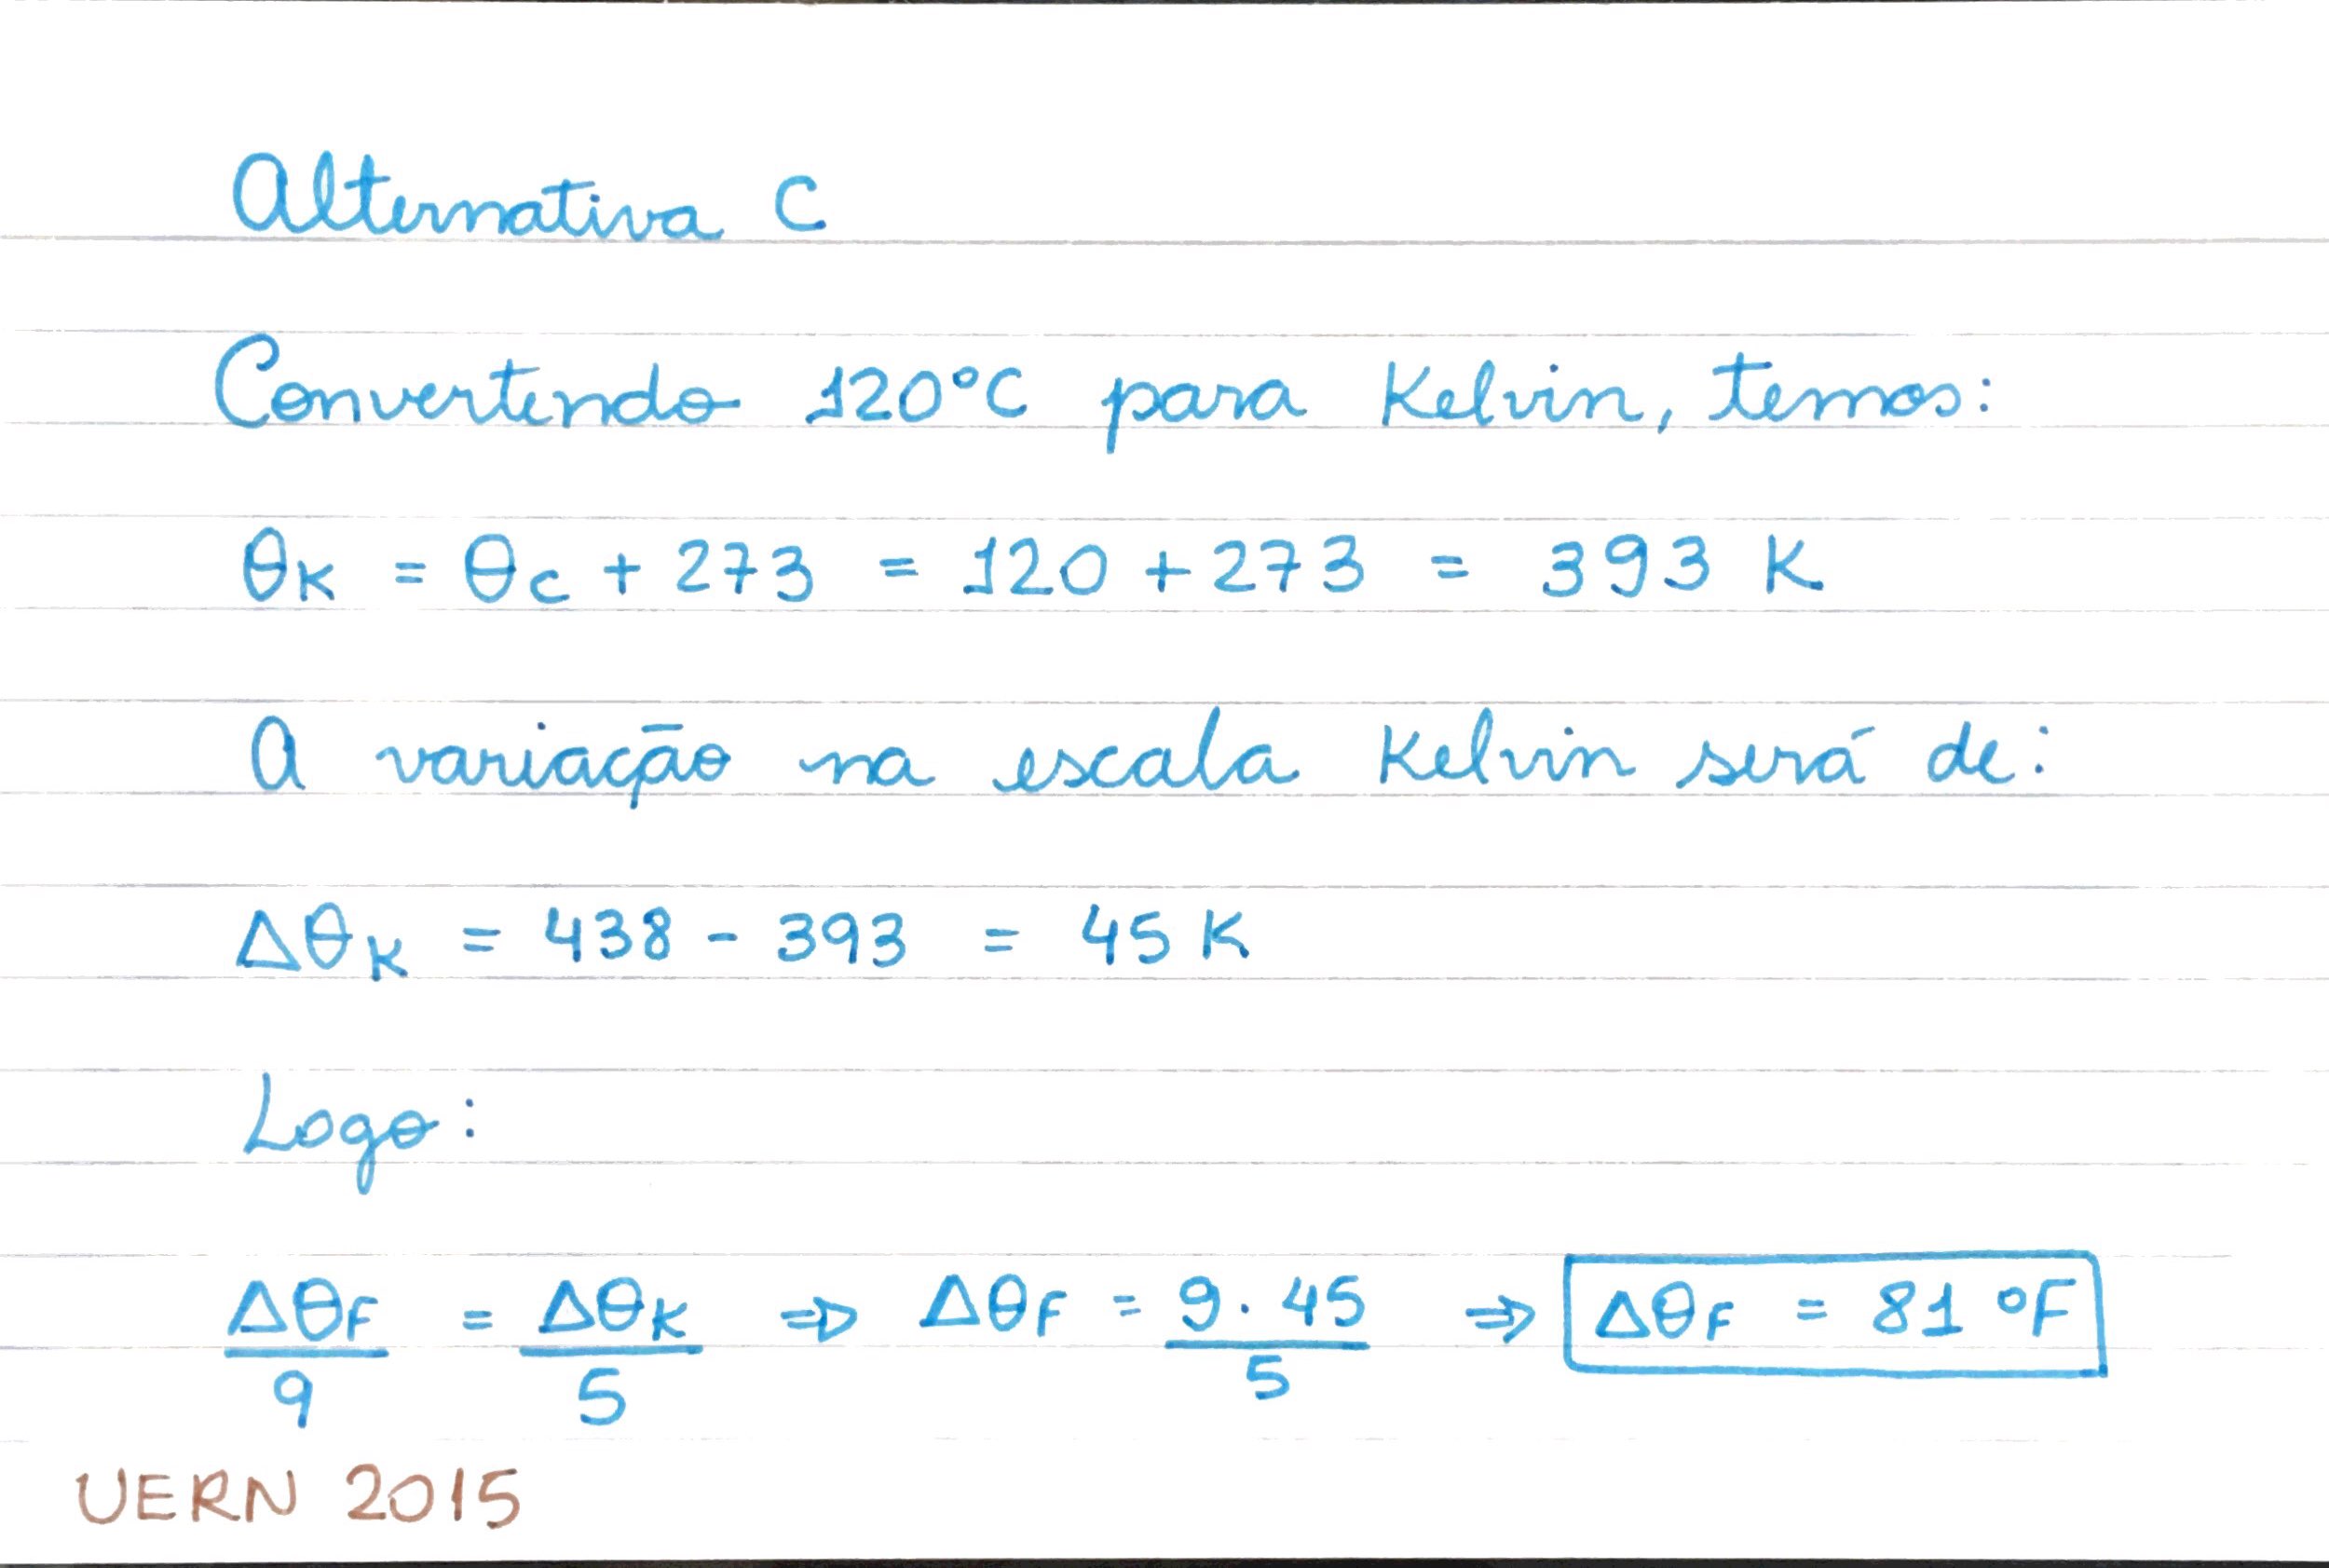 Alternativa C
Convertendo 120°C para Kelvin, temos:
θK = θC + 273 = 120 + 273 = 393 K
A variação na escala Kelvin será de:
ΔθK = 438 - 393 = 45 K
Logo:
ΔθF/9 = ΔθK/5 ⇒ ΔθF = 9·45/5 ⇒ ΔθF = 81 °F
UERN 2015